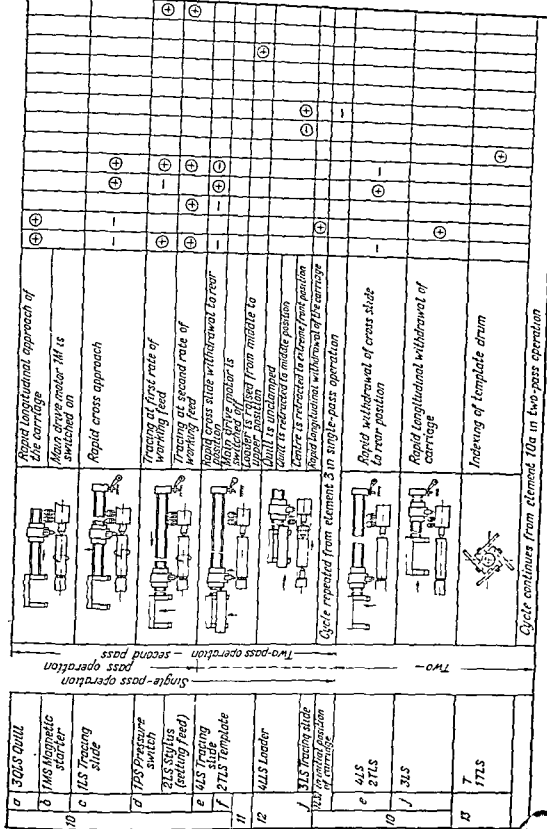 10
a 3QLS Quill
b 1MS Magnetic
starter
c 1LS Tracing
slide
d 1PS Pressure
switch
2LS Stylus
(setting feed)
e 4LS Tracing
slide
f 2TLS Template
11
12
4LLS Loader
j 3LS Tracing slide
in initial position
of carriage
10
e 4LS
2TLS
j 3LS
13
T
1TLS
Single-pass operation
Two-pass operation - second pass
pass operation
Two-
Rapid longitudinal approach of
the carriage
Main drive motor 1M is
switched on
Rapid cross approach
Tracing at first rate of
working feed
Tracing at second rate of
working feed
Rapid cross slide withdrawal to rear
position
Main drive motor is
switched off
Loader is raised from middle to
upper position
Quill is unclamped
Quill is retracted to middle position
Centre is retracted to extreme front position
Rapid longitudinal withdrawal of the carriage
Cycle repeated from element 3 in single-pass operation
Rapid withdrawal of cross slide
to rear position
Rapid longitudinal withdrawal of
carriage
Indexing of template drum
Cycle continues from element 10a in two-pass operation